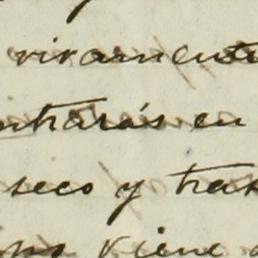 vivamente
ntrarás en
seco y tras
no viene